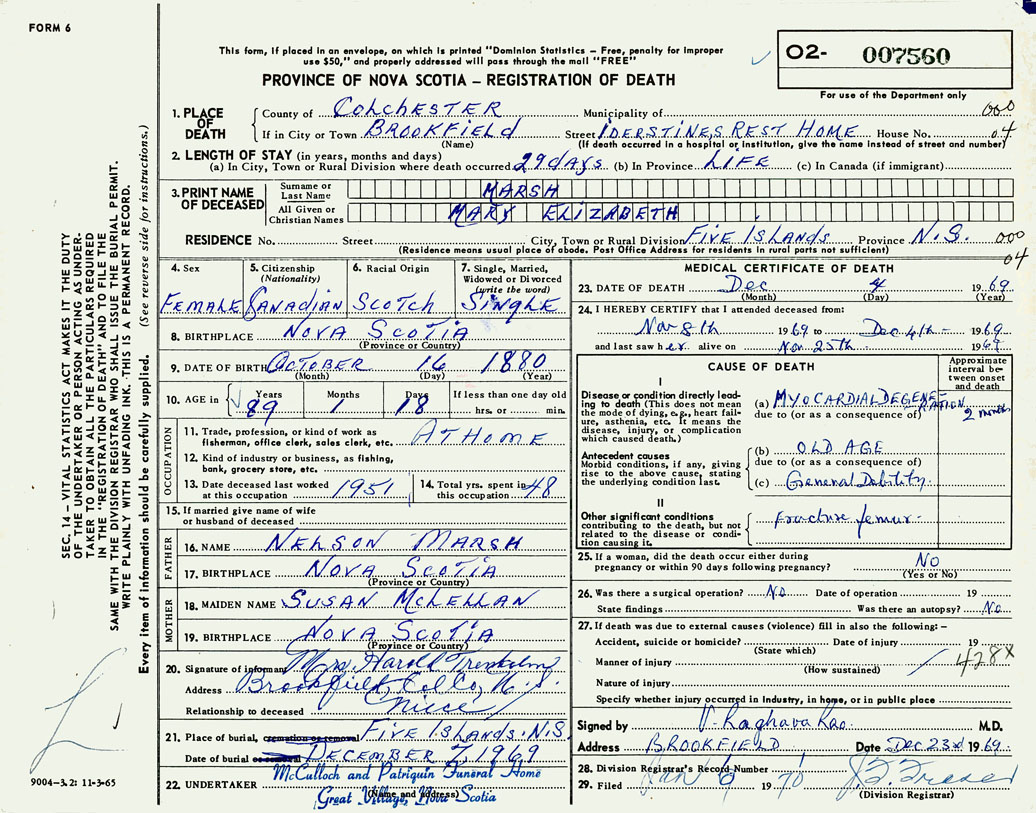 FORM 6
This form, if placed in an envelope, on which is printed "Dominion Statistics – Free, penalty for improper
use $50," and properly addressed will pass through the mail "FREE"
PROVINCE OF NOVA SCOTIA – REGISTRATION OF DEATH
O2- 007560
For use of the Department only
SEC. 14 – VITAL STATISTICS ACT MAKES IT THE DUTY
OF THE UNDERTAKER OR PERSON ACTING AS UNDER-
TAKER TO OBTAIN ALL THE PARTICULARS REQUIRED
IN THE "REGISTRATION OF DEATH" AND TO FILE THE
SAME WITH THE DIVISION REGISTRAR WHO SHALL ISSUE THE BURIAL PERMIT.
WRITE PLAINLY WITH UNFADING INK. THIS IS A PERMANENT RECORD.
Every item of information should be carefully supplied. (See reverse side for instructions.)
1. PLACE OF DEATH
County of COLCHESTER Municipality of 000
If in City or Town BROOKFIELD Street IDERSTINES REST HOME House No. 04
(Name) (If death occurred in a hospital or institution, give the name instead of street and number)
2. LENGTH OF STAY (in years, months and days)
(a) In City, Town or Rural Division where death occurred 29 days (b) In Province LIFE (c) In Canada (if immigrant)
3. PRINT NAME OF DECEASED
Surname or Last Name MARSH
All Given or Christian Names MARY ELIZABETH
RESIDENCE No. Street City, Town or Rural Division FIVE ISLANDS Province N.S. 000
(Residence means usual place of abode. Post Office Address for residents in rural parts not sufficient) 04
4. Sex
FEMALE
5. Citizenship (Nationality)
Canadian
6. Racial Origin
SCOTCH
7. Single, Married, Widowed or Divorced (write the word)
SINGLE
8. BIRTHPLACE NOVA SCOTIA
(Province or Country)
9. DATE OF BIRTH OCTOBER 16 1880
(Month) (Day) (Year)
10. AGE in Years Months Days If less than one day old
89 1 18 hrs. or min.
OCCUPATION
11. Trade, profession, or kind of work as
fisherman, office clerk, sales clerk, etc. AT HOME
12. Kind of industry or business, as fishing,
bank, grocery store, etc.
13. Date deceased last worked
at this occupation 1951
14. Total yrs. spent in
this occupation 48
15. If married give name of wife
or husband of deceased
FATHER
16. NAME NELSON MARSH
17. BIRTHPLACE NOVA SCOTIA
(Province or Country)
MOTHER
18. MAIDEN NAME SUSAN McLELLAN
19. BIRTHPLACE NOVA SCOTIA
(Province or Country)
20. Signature of informant Mrs. Harold Trenholm
Address Brookfield, Col. Co., N.S.
Relationship to deceased Niece
21. Place of burial, cremation or removal FIVE ISLANDS. N.S.
Date of burial DECEMBER 7, 1969
22. UNDERTAKER McCulloch and Patriquin Funeral Home
(Name and address)
Great Village, Nova Scotia
9004–3.2: 11-3-65
MEDICAL CERTIFICATE OF DEATH
23. DATE OF DEATH Dec 4 1969
(Month) (Day) (Year)
24. I HEREBY CERTIFY that I attended deceased from:
Nov 8th 1969 to Dec 4th 1969
and last saw her alive on Nov 25th 1969
CAUSE OF DEATH
Approximate interval between onset and death
I
Disease or condition directly leading to death (This does not mean the mode of dying, e.g., heart failure, asthenia, etc. It means the disease, injury, or complication which caused death.)
(a) MYOCARDIAL DEGENERATION 2 months
due to (or as a consequence of)
Antecedent causes
Morbid conditions, if any, giving rise to the above cause, stating the underlying condition last.
(b) OLD AGE
due to (or as a consequence of)
(c) General Debility.
II
Other significant conditions
contributing to the death, but not related to the disease or condition causing it.
fracture femur
25. If a woman, did the death occur either during
pregnancy or within 90 days following pregnancy? NO
(Yes or No)
26. Was there a surgical operation? No Date of operation 19
State findings Was there an autopsy? No
27. If death was due to external causes (violence) fill in also the following: –
Accident, suicide or homicide? Date of injury 19
(State which) 428X
Manner of injury
(How sustained)
Nature of injury
Specify whether injury occurred in industry, in home, or in public place
Signed by V. Raghava Rao. M.D.
Address BROOKFIELD Date Dec 23rd 1969
28. Division Registrar's Record Number 1
29. Filed Jan 6 1970 J. F. Fraser
(Division Registrar)